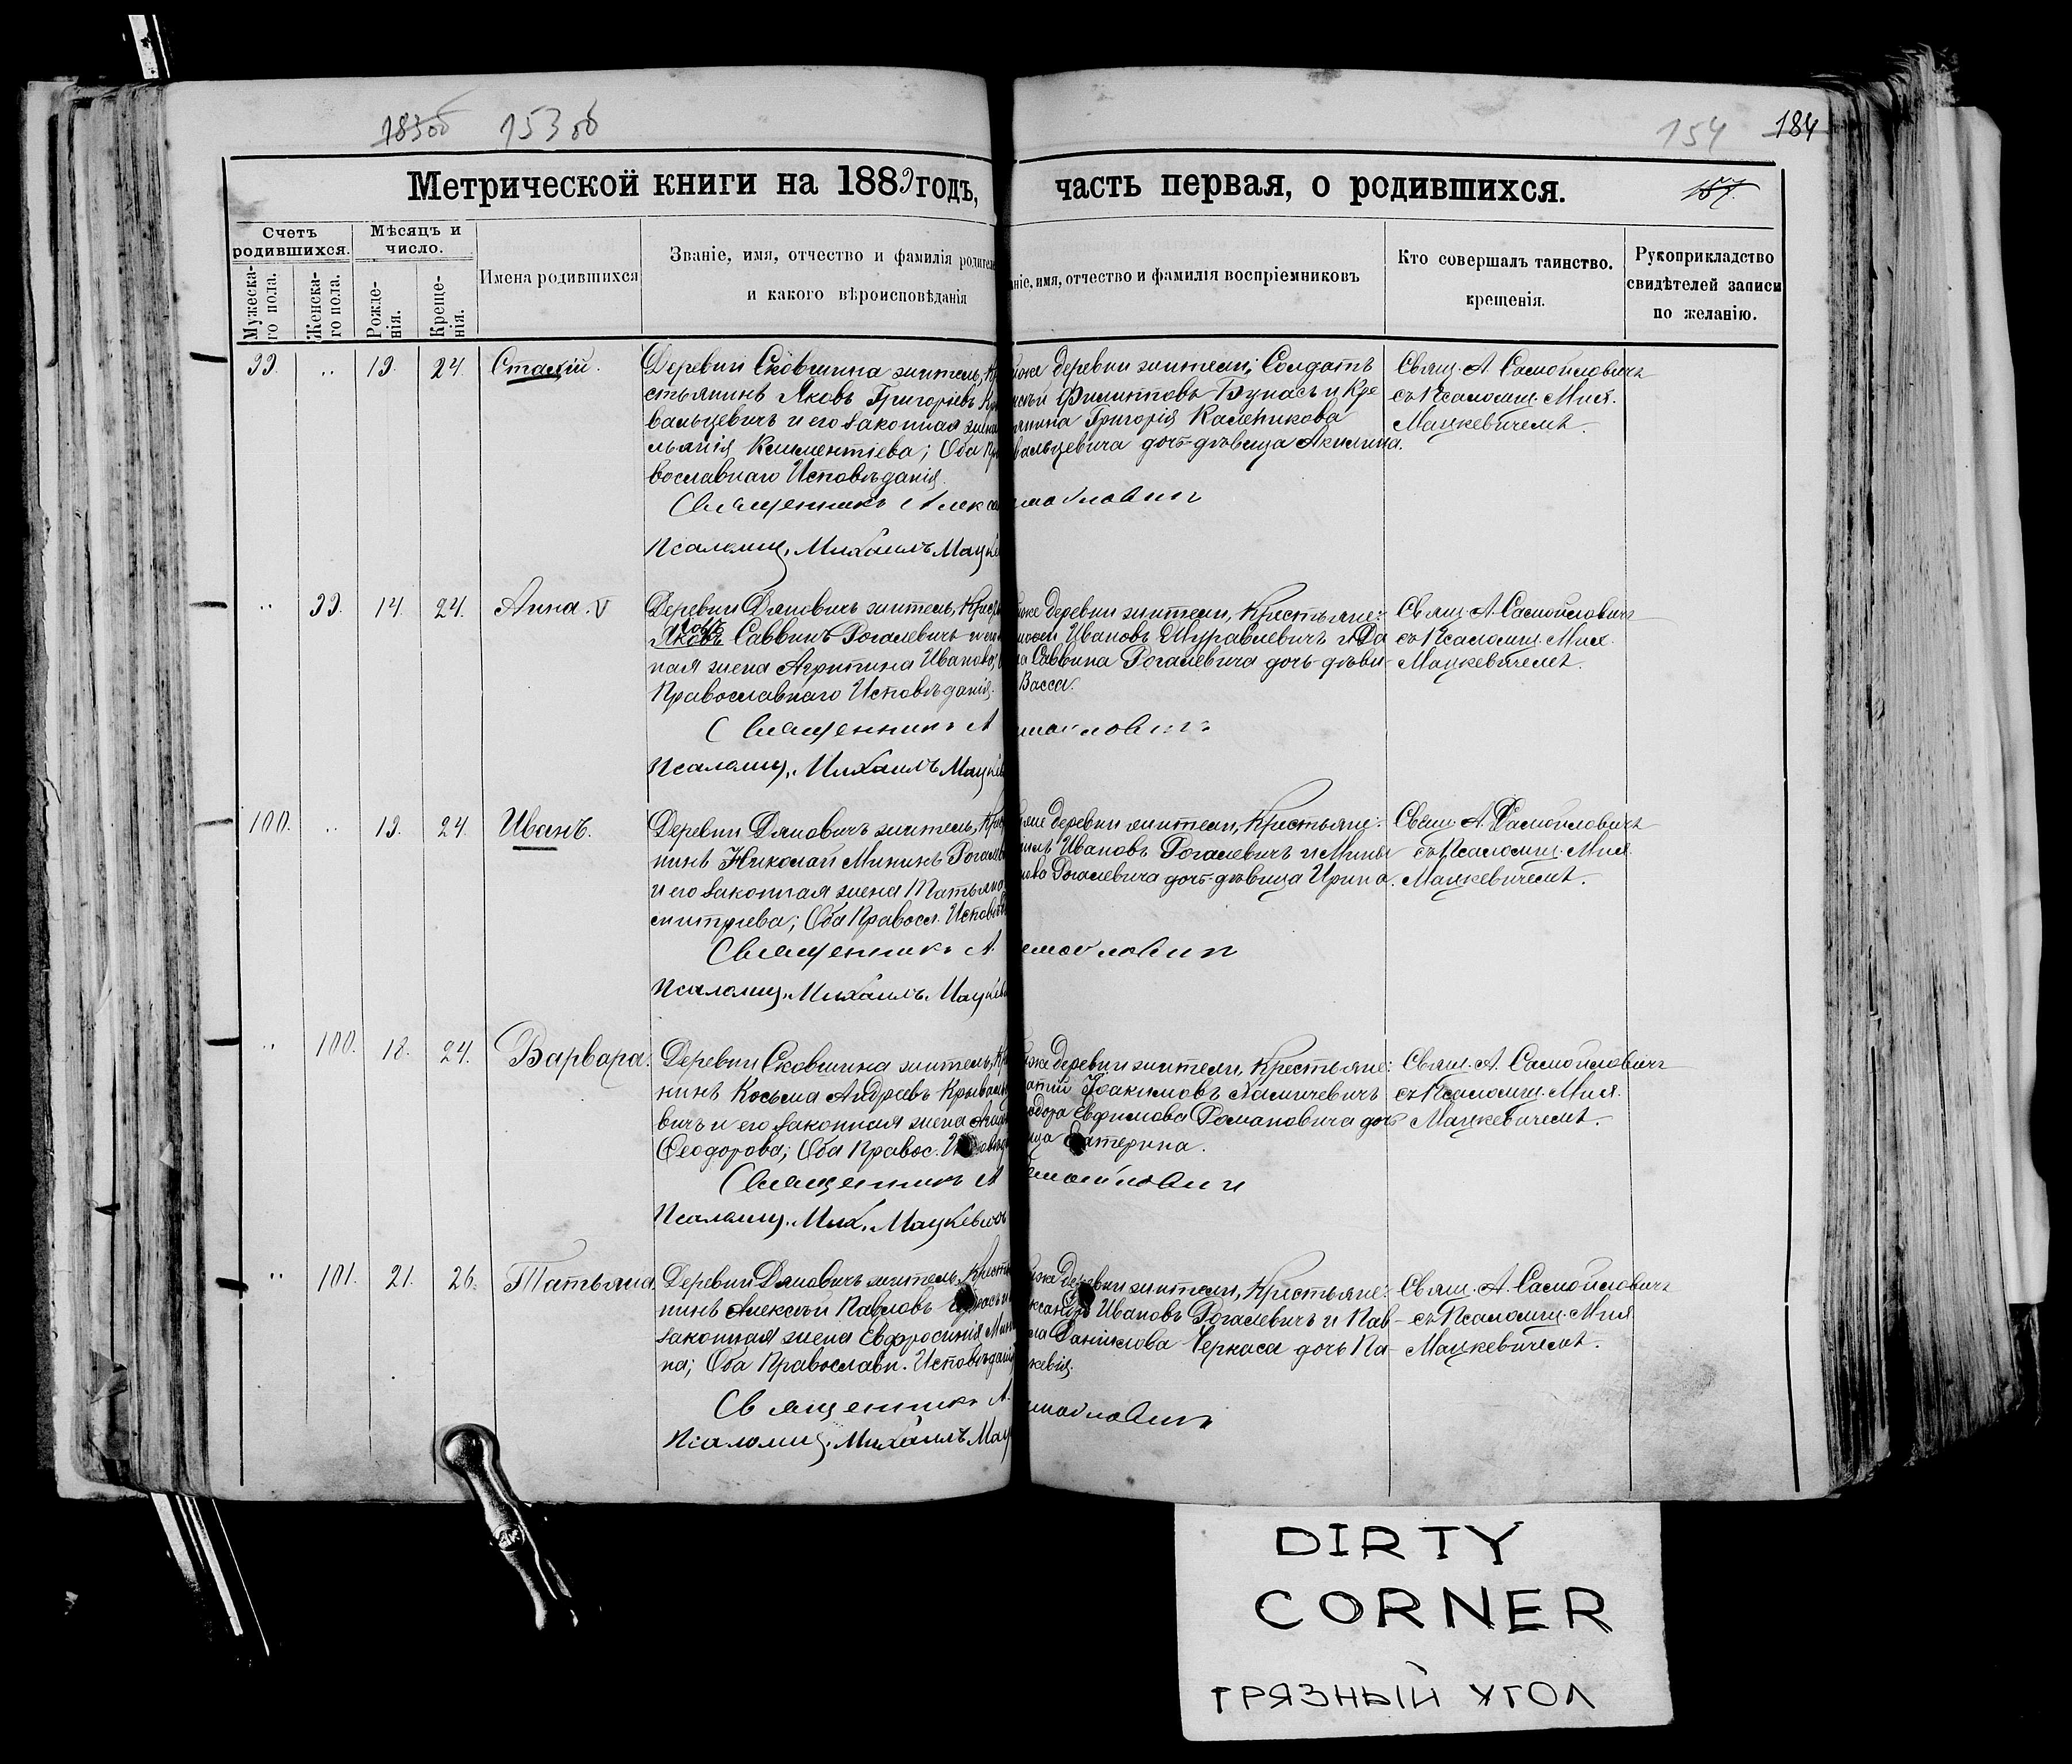 183об 153об
154 184
Метрической книги на 1889 годъ,
часть первая, о родившихся.
157.
Счетъ родившихся.
Мужеска-
го пола.
Женска-
го пола.
Мѣсяцъ и число.
Рожде-
нія.
Креще-
нія.
Имена родившихся
Званіе, имя, отчество и фамилія родителе
и какого вѣроисповѣданія
ніе, имя, отчество и фамилія воспріемниковъ
Кто совершалъ таинство.
крещенія.
Рукоприкладство
свидѣтелей записи
по желанію.
99. „ 19. 24. Стахій.
Деревни Сковшина житель, Кре
стьянинъ Яковъ Григоріевъ Кры
вальцевичъ и его законная жена
Климентіева; Оба Пра
вославнаго Исповѣданія.
Священникъ Алекса
Псаломщ. Михаилъ Мацке
же деревни жители; Солдатъ
Филипповъ и Кре
янина Григорія Каленикова
вальцевича дочь-дѣвица Акилина.
мойловичъ
Свящ. А. Самойловичъ
съ Псаломщ. Мих.
Мацкевичемъ.
„ 99. 14. 24. Анна. v
Деревни Дяповичъ житель, Крест
Яковъ Саввинъ Рогалевичъ и его
ная жена Агрипина Иванова;
Православнаго Исповѣданія.
Священникъ А
Псаломщ. Михаилъ Мацкев
же деревни жители, Крестьяне:
Ивановъ Журавлевичъ и Са
ва Саввина Рогалевича дочь-дѣви-
Васса.
мойловичъ
Свящ. А. Самойловичъ
съ Псаломщ. Мих.
Мацкевичемъ.
100. „ 19. 24. Иванъ.
Деревни Дяповичъ житель, Крес
нинъ Николай Мининъ Рогале
и его законная жена Татьяна
митріева; Оба Правосл. Исповѣд
Священникъ А.
Псаломщ. Михаилъ Мацкев
же деревни жители, Крестьяне:
Ивановъ Рогалевичъ и Мины
Рогалевича дочь-дѣвица Ирина.
мойловичъ
Свящ. А. Самойловичъ
съ Псаломщ. Мих.
Мацкевичемъ.
„ 100. 18. 24. Варвара.
Деревни Сковшина житель, Кре
нинъ Косьма Андреевъ Крываль
вичъ и его законная жена
Феодорова; Оба Правос.
Священникъ А
Псаломщ. Мих. Мацкевичъ
же деревни жители, Крестьяне:
Іоакимовъ Хамичевичъ
Евфимова Романовича дочь
Екатерина.
мойловичъ
Свящ. А. Самойловичъ
съ Псаломщ. Мих.
Мацкевичемъ.
„ 101. 21. 26. Татьяна.
Деревни Дяповичъ житель, Кресть
нинъ Алексѣй Павловъ
законная жена Евфросинія Мини
на; Оба Православн. Исповѣданія
Священникъ А.
Псаломщ. Михаилъ Мац
же деревни жители, Крестьяне:
ксандръ Ивановъ Рогалевичъ и Пав-
ла Даніилова Черкаса дочь Па-
мойловичъ
Свящ. А. Самойловичъ
съ Псаломщ. Мих.
Мацкевичемъ.
DIRTY
CORNER
ГРЯЗНЫЙ УГОЛ